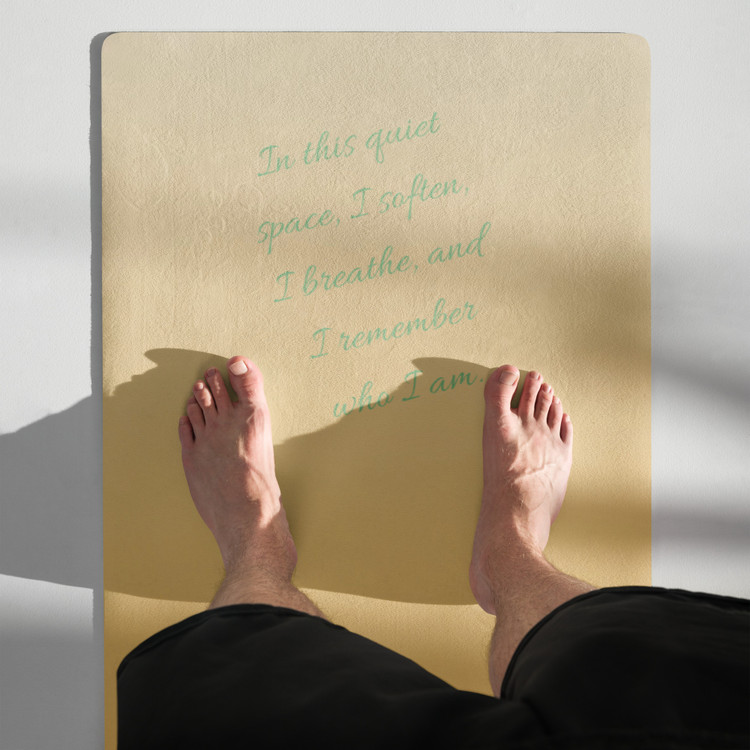 In this quiet
space, I soften,
I breathe, and
I remember
who I am.